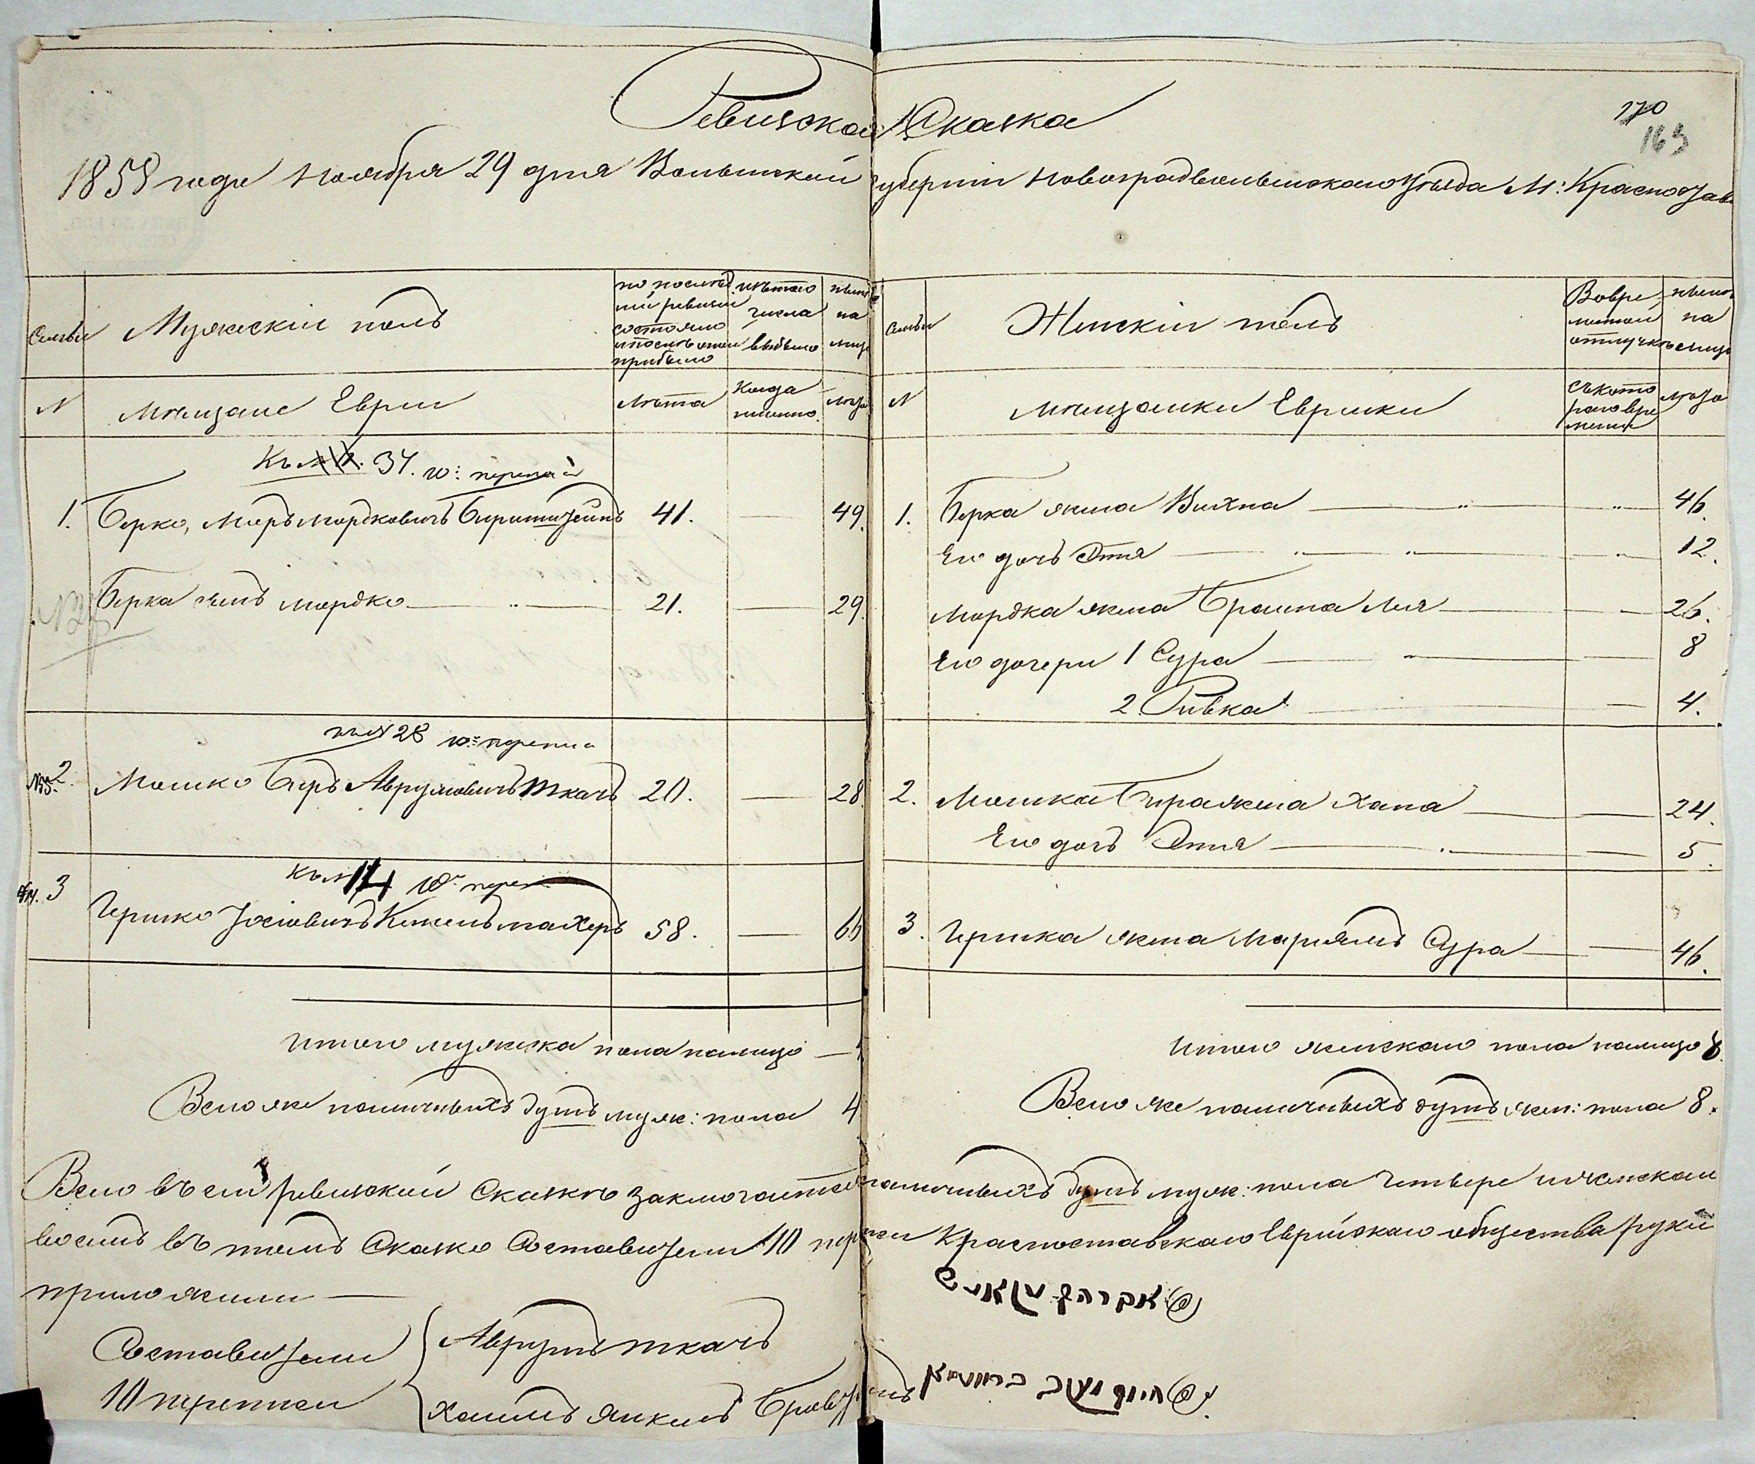 Ревизская Сказка
170
163
1858 года Ноября 29 дня Волынской губернии Новоградволынского Уезда М: Красностав
Семьи
Мужеский полъ
по последней ревизии состояло и после оной прибыло
изъ того числа выбыло
ныне на лицо
Семьи
Женский полъ
Во временной отлучке
ныне на лицо
N
Мещане Евреи
Лета
Когда именно
Лета
N
Мещанки Еврейки
Съ которого времени
Лета
37. 10: переписи
1. Берко, Меръ Мордковичъ 41. — 49.
Берка сынъ Мордко 21. — 29
1. Берка жена Вихна 46.
Его дочь Этя 12.
Мордка жена Брайна Лея 26.
Его дочери 1 Сура 8
2 Ривка 4.
къ N 28 10: переписи
2. Мошко Беръ Аврумовичъ Ткачъ 20. — 28
2. Мошка Бера жена Хана 24.
Его дочь Этя 5.
къ N 14 10: переп
3 Гершко Іосіовичъ Кисельмахеръ 58. — 66
3. Гершка жена Маріямъ Сура 46.
Итого мужеска пола налицо — 4
Итого женскаго пола налицо 8
Всего же наличныхъ душъ муж: пола 4
Всего же наличныхъ душъ жен: пола 8.
Всего въ сей ревизской Сказке заключается наличныхъ душъ муж: пола четыре и женскаго
восемь въ томъ Сказке Составители 10 переписи Красноставскаго Еврейскаго общества руки
приложили —
Составители
10 переписи
Аврумъ Ткачъ
Хаимъ Янкель
אברהם
חיים יעקב